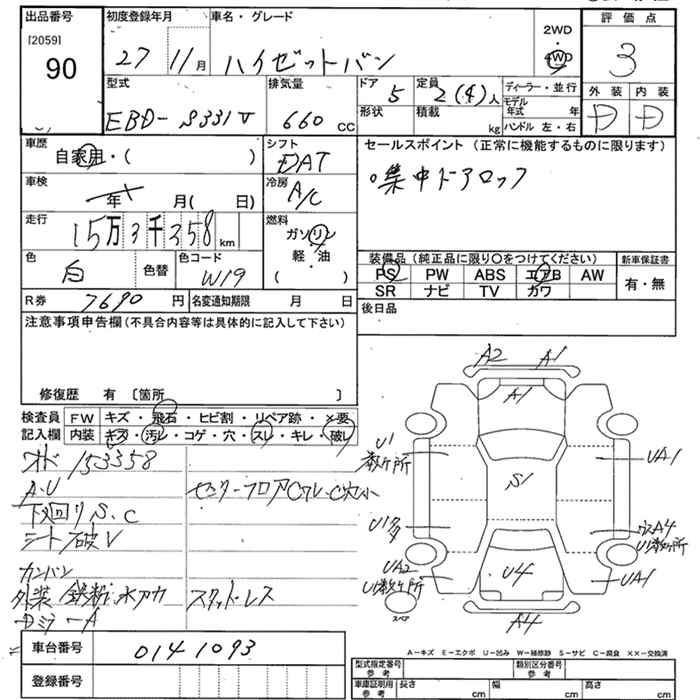 出品番号
[2059]
90
初度登録年月
27 11月
車名・グレード
ハイゼットバン
2WD
4WD
評価点
3
外装 内装
D D
型式
EBD-S331V
排気量
660 CC
ドア
5
形状
定員
2(4)人
積載
kg
ディーラー・並行
モデル年式 年
ハンドル 左・右
車歴
自家用・( )
シフト
DAT
車検
年 月( 日)
冷房
A/C
走行
15万3千358km
燃料
ガソリン
軽・油
( )
色
白
色替
色コード
W19
R券
7690円
名変通知期限 月 日
セールスポイント(正常に機能するものに限ります)
○集中ドアロック
装備品(純正品に限り○をつけてください)
PS PW ABS エアB AW
SR ナビ TV カワ
新車保証書
有・無
後日品
注意事項申告欄(不具合内容等は具体的に記入して下さい)
修復歴 有 〔箇所 〕
検査員記入欄
FW キズ・飛石・ヒビ割・リペア跡・×要
内装 キズ・汚レ・コゲ・穴・スレ・キレ・破レ
153358
A・U
下廻りS、C
シート破レ
カンバン
外装 鉄粉・水アカ
スタッドレス
A2 A1
A1
U1
数ヶ所
S1
UA1
U1多
A4
U1数ヶ所
UA2
U1数ヶ所
U4
UA1
A4
スペア
A-キズ E-エクボ U-凹み W-補修跡 S-サビ C-腐食 ××-交換済
車台番号
0141093
登録番号
型式指定番号
参考
類別区分番号
参考
車庫証明用
参考
長さ cm
幅 cm
高さ cm